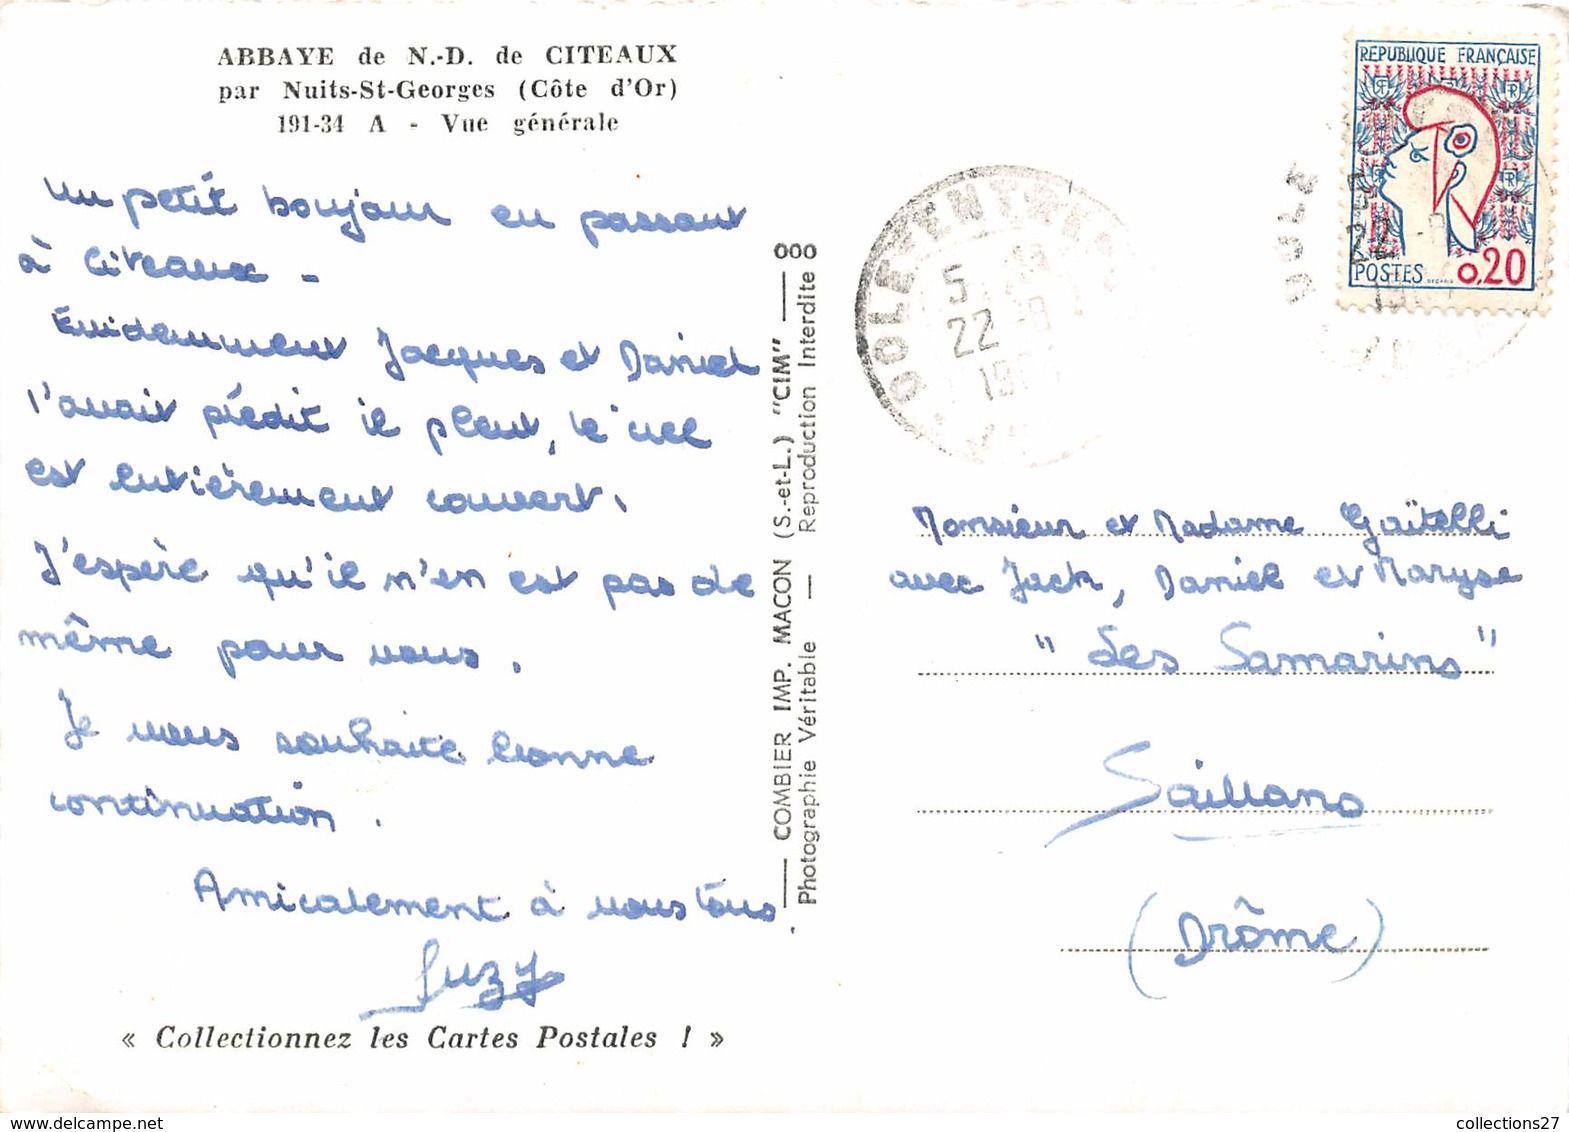 ABBAYE de N.-D. de CITEAUX
par Nuits-St-Georges (Côte d'Or)
191-34 A - Vue générale
un petit bonjour en passant
à Citeaux -
Evidemment Jacques et Daniel
l'avait prédit il pleut, le ciel
est entièrement couvert.
J'espère qu'il n'en est pas de
même pour vous.
Je vous souhaite bonne
continuation.
Amicalement à vous tous.
Suzy
« Collectionnez les Cartes Postales ! »
COMBIER IMP. MACON (S.-et-L.) "CIM"
Photographie Véritable — Reproduction Interdite
REPUBLIQUE FRANÇAISE
POSTES 0,20
DOLE
22
19
DOLE
22
19
Monsieur et Madame Gaïtelli
avec Jack, Daniel et Maryse
"Les Samarins"
Saillans
(Drôme)
collections27